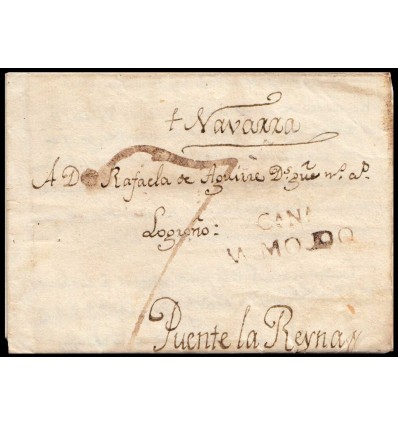 + Navarra
A Da Rafaela de Aguirre Ds gue ms as
Logroño:
CANA
MO DO
7
Puente la Reyna